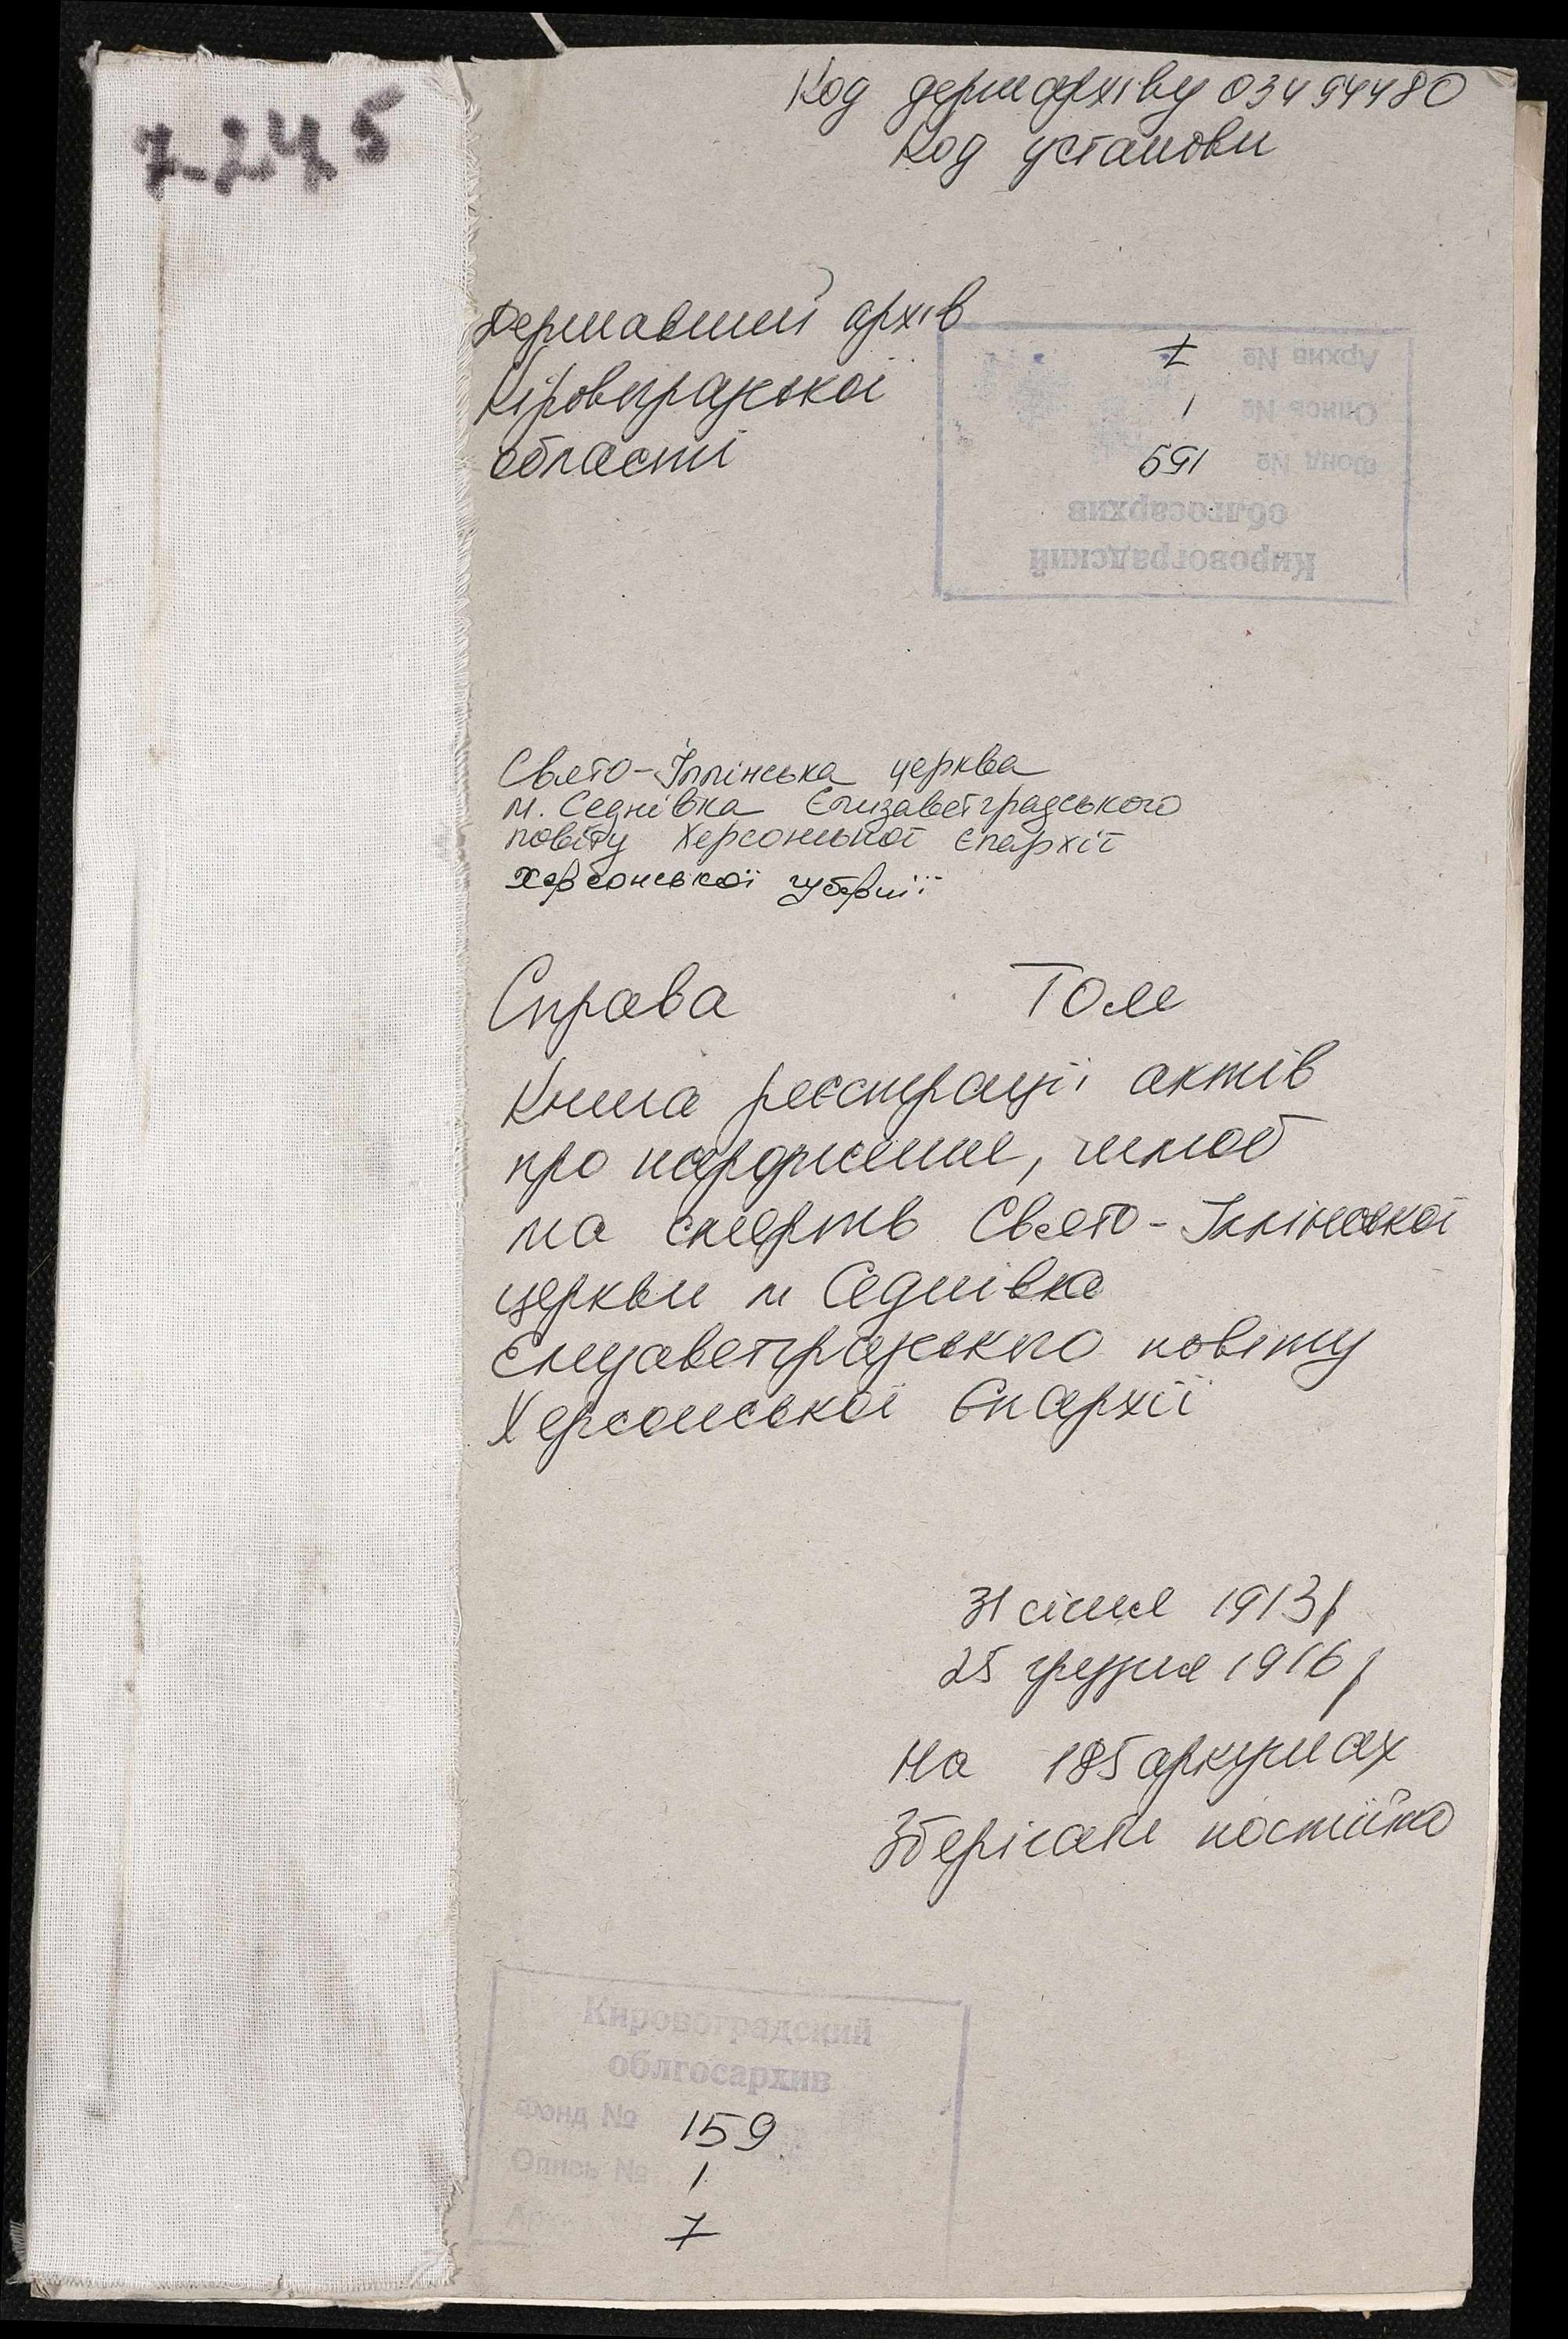 7-245
Код держархіву 03494480
Код установи
Державний архів
Кіровоградської
області
Кировоградский
облгосархив
Фонд № 159
Опись № 1
Архив № 7
Свято-Іллінська церква
м. Седнівка Єлизаветградського
повіту Херсонської єпархії
Херсонської губернії
Справа Том
Книга реєстрації актів
про народження, шлюб
та смерть Свято-Іллінської
церкви м Седнівка
Єлизаветградського повіту
Херсонської Єпархії
31 січня 1913р
25 грудня 1916р
На 185 аркушах
Зберігати постійно
Кировоградский
облгосархив
Фонд № 159
Опись № 1
7